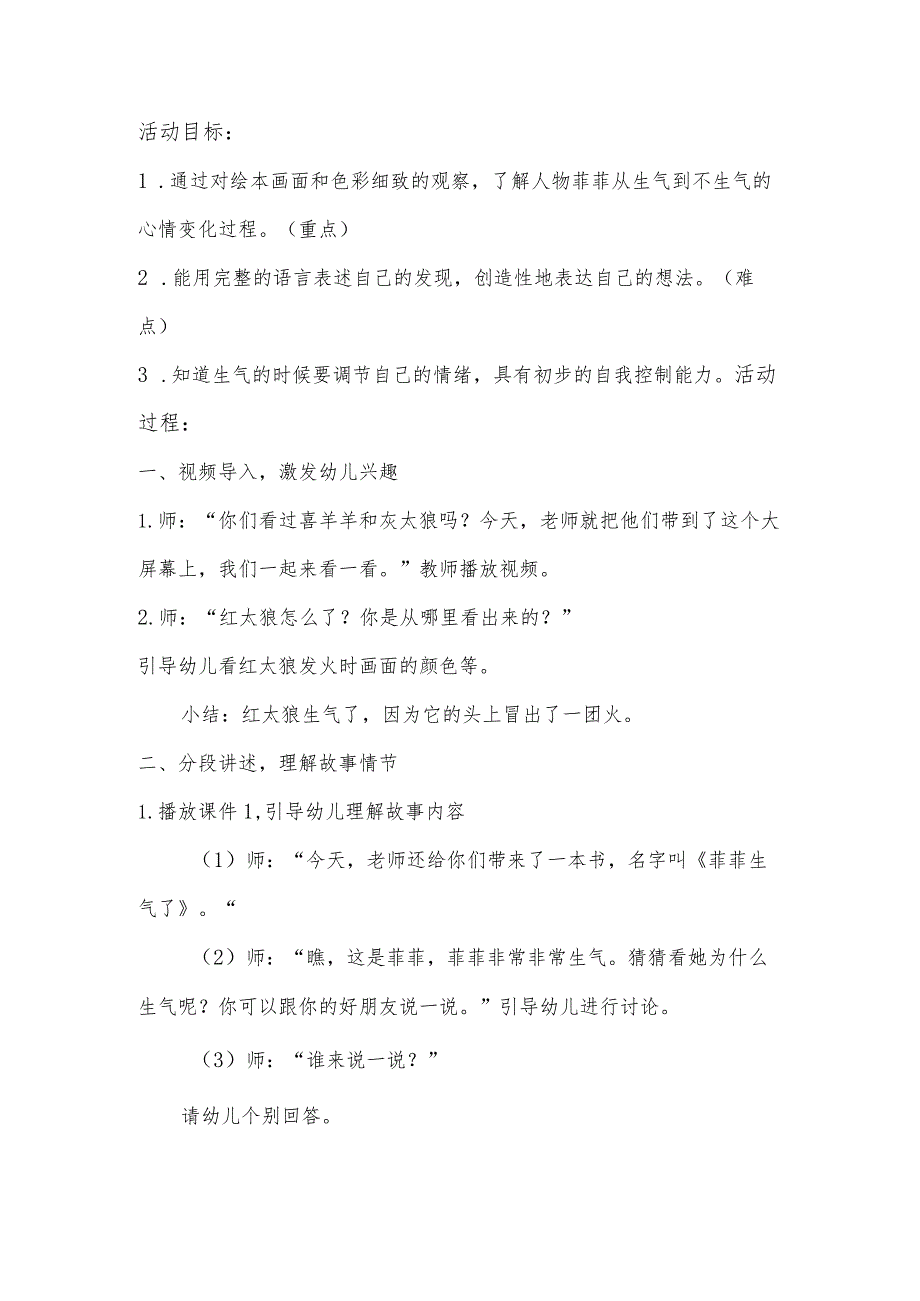 活动目标：
1 .通过对绘本画面和色彩细致的观察，了解人物菲菲从生气到不生气的
心情变化过程。（重点）
2 .能用完整的语言表述自己的发现，创造性地表达自己的想法。（难
点）
3 .知道生气的时候要调节自己的情绪，具有初步的自我控制能力。活动
过程：
一、视频导入，激发幼儿兴趣
1.师：“你们看过喜羊羊和灰太狼吗？今天，老师就把他们带到了这个大
屏幕上，我们一起来看一看。”教师播放视频。
2.师：“红太狼怎么了？你是从哪里看出来的？”
引导幼儿看红太狼发火时画面的颜色等。
小结：红太狼生气了，因为它的头上冒出了一团火。
二、分段讲述，理解故事情节
1.播放课件1,引导幼儿理解故事内容
（1）师：“今天，老师还给你们带来了一本书，名字叫《菲菲生
气了》。“
（2）师：“瞧，这是菲菲，菲菲非常非常生气。猜猜看她为什么
生气呢？你可以跟你的好朋友说一说。”引导幼儿进行讨论。
（3）师：“谁来说一说？”
请幼儿个别回答。